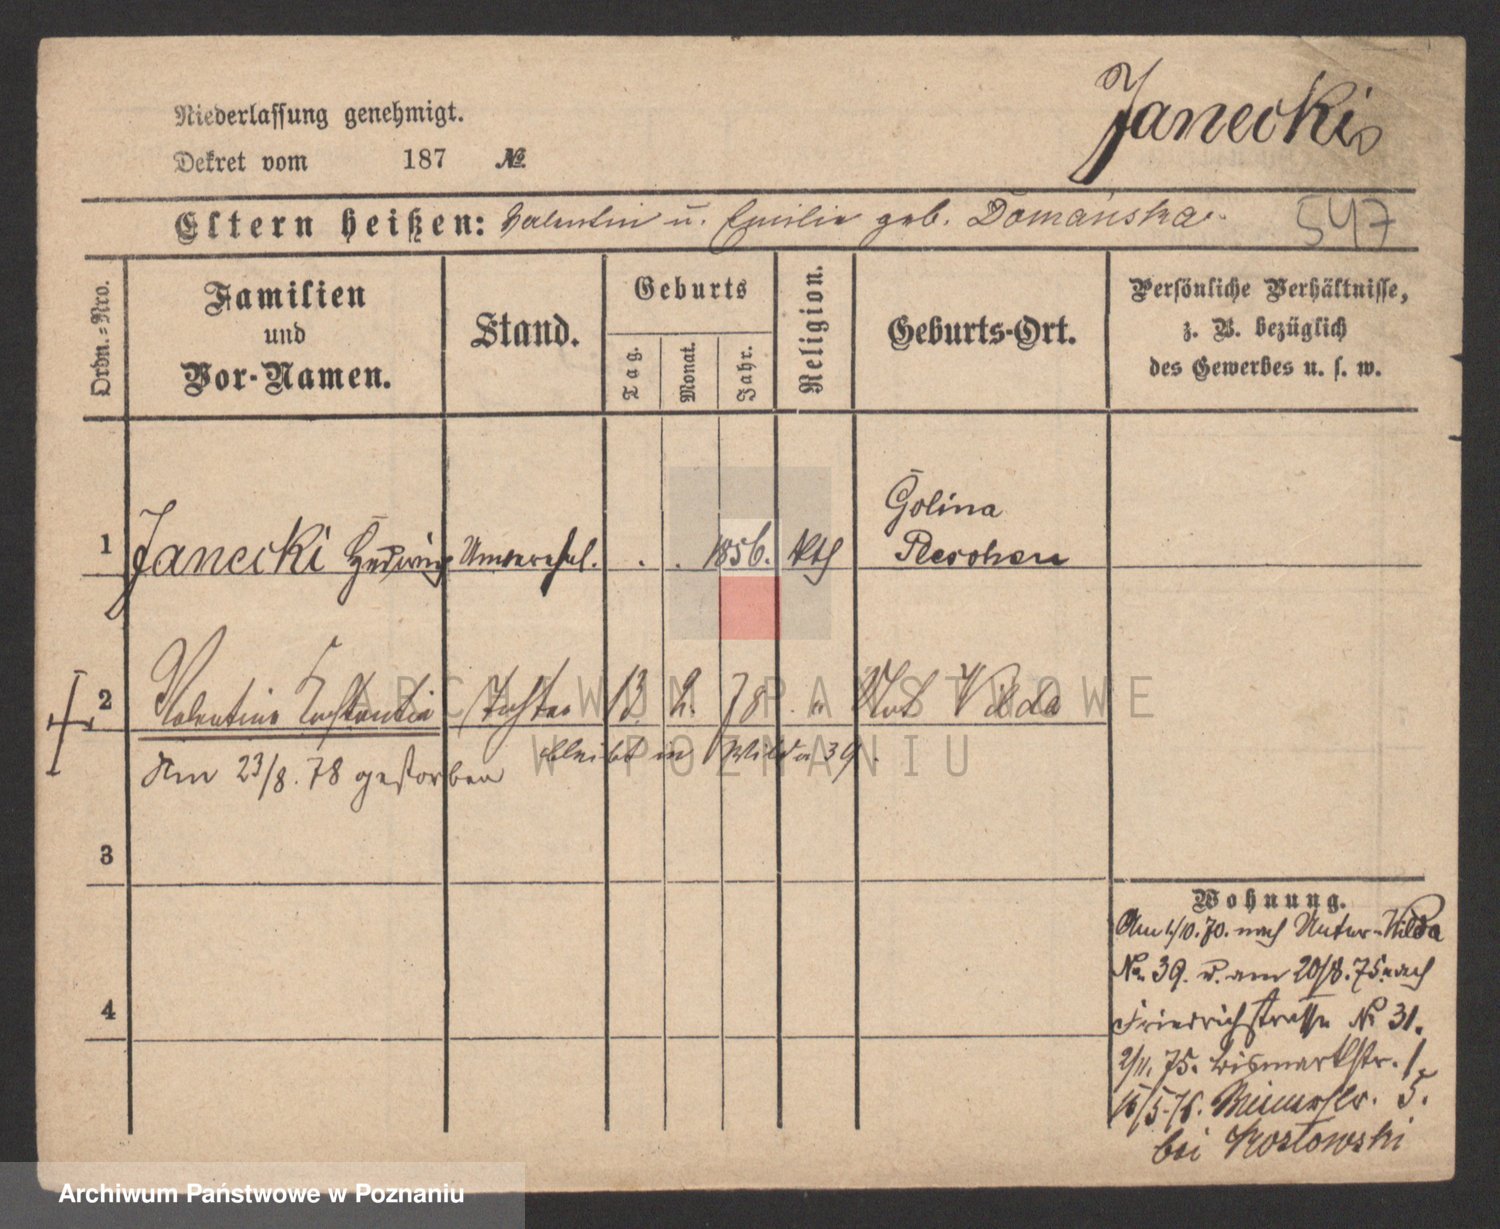 Niederlassung genehmigt.
Dekret vom 187 №
Janecki
Eltern heißen: Valentin u. Emilie geb. Domańska
547
Ordn.-Nro.
Familien
und
Vor-Namen.
Stand.
Geburts
Tag.
Monat.
Jahr.
Religion.
Geburts-Ort.
Persönliche Verhältnisse,
z. B. bezüglich
des Gewerbes u. s. w.
1 Janecki Hedwig Unverehel. . . 1856. kth
Golina
Pleschen
2 Valentine Tochter 13. 2. 78 Wilda
bleibt in Wilda 39.
Am 23/8. 78 gestorben
3
4
Wohnung.
Am 4/10. 70. nach Unter-Wilda
No 39. u. am 20/8. 75. nach
Friedrichstrasse No 31.
2/11. 75. Bismarkstr. 1.
15/5. 76. 5.
bei Kostowski
ARCHIWUM PAŃSTWOWE
W POZNANIU
Archiwum Państwowe w Poznaniu